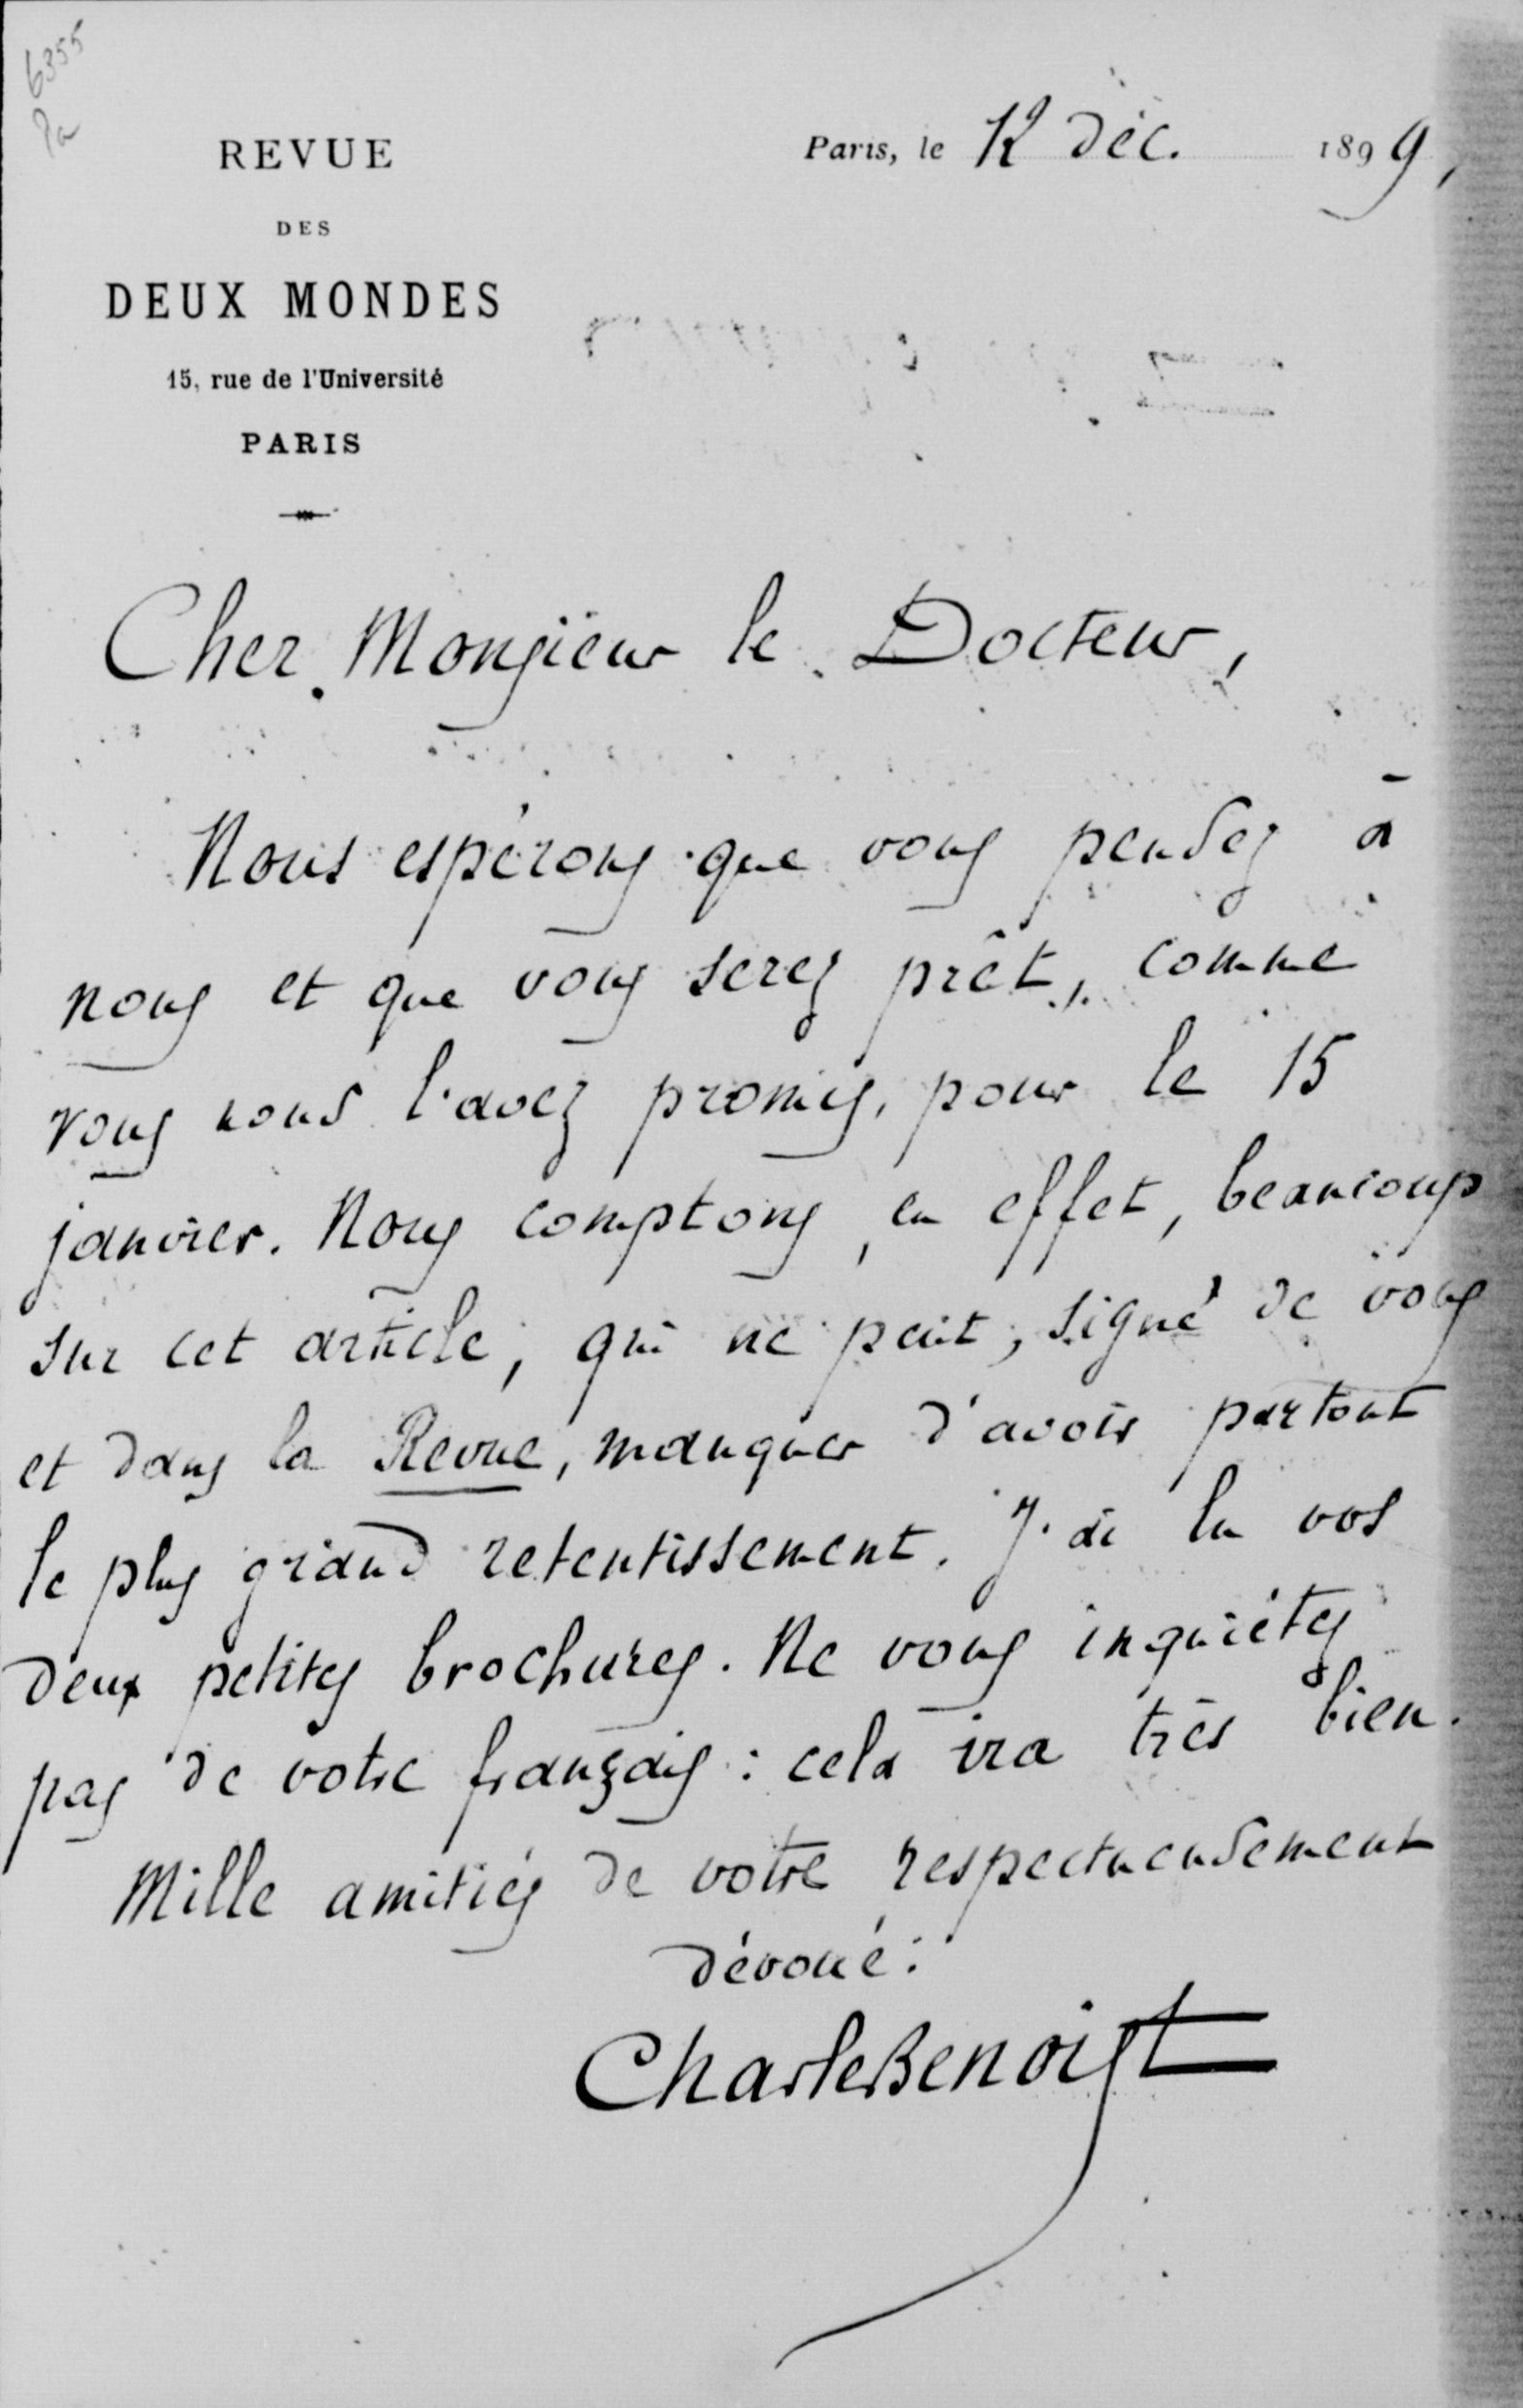 6355
REVUE
DES
DEUX MONDES
15, rue de l'Université
PARIS
Paris, le 12 Déc. 1899,
Cher Monsieur le Docteur,
Nous espérons que vous pensez à
nous et que vous serez prêt, comme
vous nous l'avez promis, pour le 15
janvier. Nous comptons, en effet, beaucoup
sur cet article, qui ne peut, signé de vous
et dans la Revue, manquer d'avoir partout
le plus grand retentissement. J'ai lu vos
deux petites brochures. Ne vous inquiétez
pas de votre français : cela ira très bien.
Mille amitiés de votre respectueusement
dévoué :
Charles Benoist